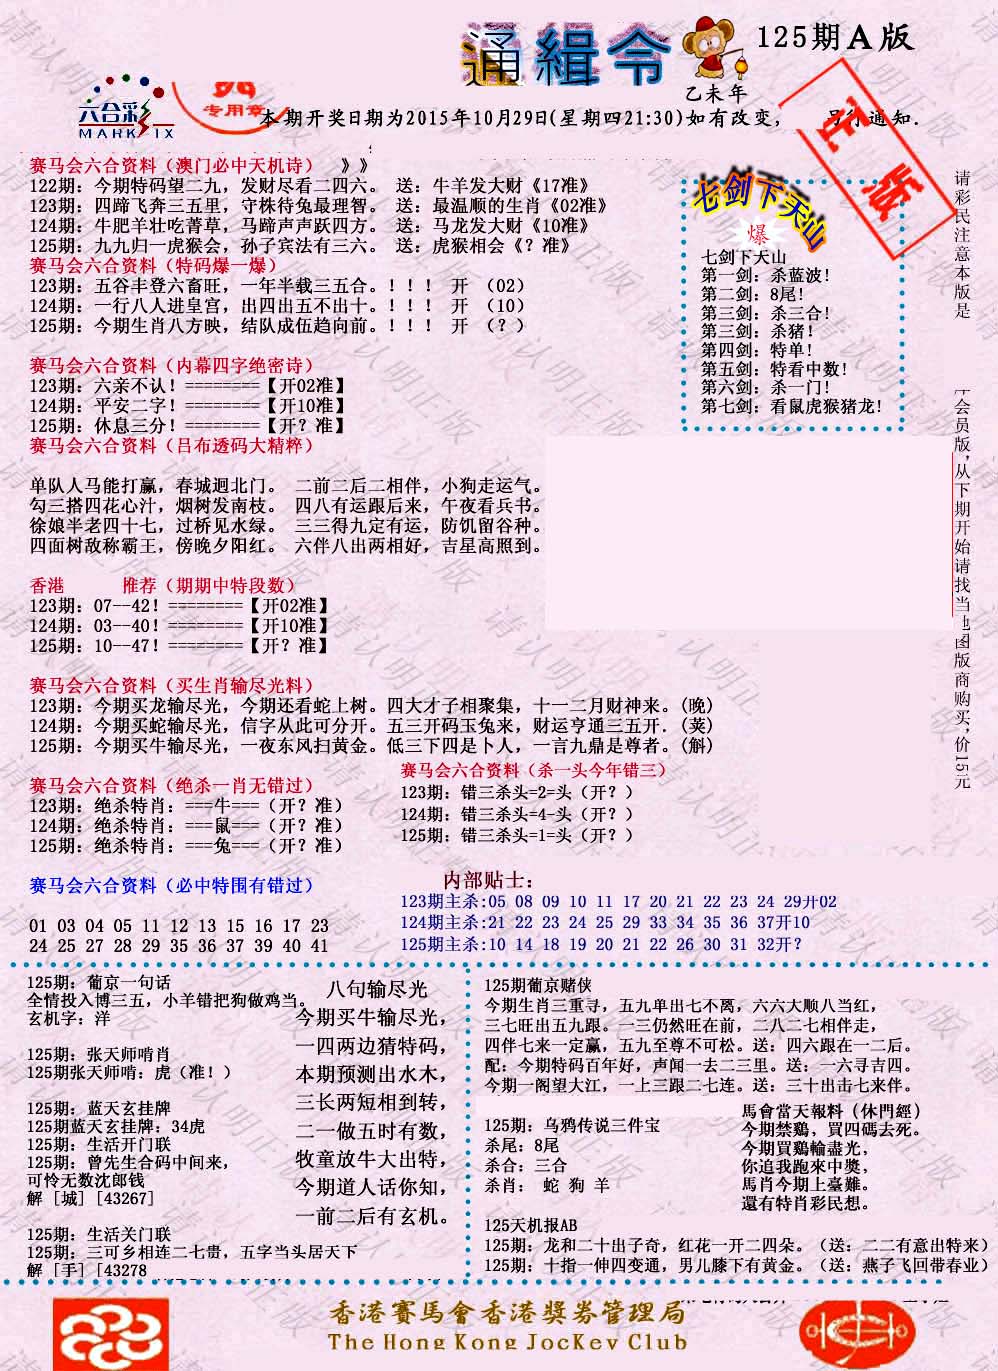 通緝令
125期A版
乙未年
六合彩
MARK SIX
专用章
正版
本期开奖日期为2015年10月29日(星期四21:30)如有改变，
通知.
赛马会六合资料（澳门必中天机诗） 》》
122期：今期特码望二九，发财尽看二四六。 送：牛羊发大财《17准》
123期：四蹄飞奔三五里，守株待兔最理智。 送：最温顺的生肖《02准》
124期：牛肥羊壮吃菁草，马蹄声声跃四方。 送：马龙发大财《10准》
125期：九九归一虎猴会，孙子宾法有三六。 送：虎猴相会《？准》
赛马会六合资料（特码爆一爆）
123期：五谷丰登六畜旺，一年半载三五合。！！！ 开 （02）
124期：一行八人进皇宫，出四出五不出十。！！！ 开 （10）
125期：今期生肖八方映，结队成伍趋向前。！！！ 开 （？）
赛马会六合资料（内幕四字绝密诗）
123期：六亲不认！========【开02准】
124期：平安二字！========【开10准】
125期：休息三分！========【开？准】
赛马会六合资料（吕布透码大精粹）
单队人马能打赢，春城迥北门。 二前三后二相伴，小狗走运气。
勾三搭四花心汁，烟树发南枝。 四八有运跟后来，午夜看兵书。
徐娘半老四十七，过桥见水绿。 三三得九定有运，防饥留谷种。
四面树敌称霸王，傍晚夕阳红。 六伴八出两相好，吉星高照到。
香港 推荐（期期中特段数）
123期：07--42！========【开02准】
124期：03--40！========【开10准】
125期：10--47！========【开？准】
赛马会六合资料（买生肖输尽光料）
123期：今期买龙输尽光，今期还看蛇上树。四大才子相聚集，十一二月财神来。(晚)
124期：今期买蛇输尽光，信字从此可分开。五三开码玉兔来，财运亨通三五开．(荚)
125期：今期买牛输尽光，一夜东风扫黄金。低三下四是卜人，一言九鼎是尊者。(斛)
赛马会六合资料（绝杀一肖无错过）
123期：绝杀特肖：===牛===（开？准）
124期：绝杀特肖：===鼠===（开？准）
125期：绝杀特肖：===兔===（开？准）
赛马会六合资料（杀一头今年错三）
123期：错三杀头=2=头（开？）
124期：错三杀头=4-头（开？）
125期：错三杀头=1=头（开？）
赛马会六合资料（必中特围有错过）
01 03 04 05 11 12 13 15 16 17 23
24 25 27 28 29 35 36 37 39 40 41
内部贴士：
123期主杀:05 08 09 10 11 17 20 21 22 23 24 29开02
124期主杀:21 22 23 24 25 29 33 34 35 36 37开10
125期主杀:10 14 18 19 20 21 22 26 30 31 32开？
七剑下天山
爆
七剑下天山
第一剑：杀蓝波！
第二剑：8尾！
第三剑：杀三合！
第三剑：杀猪！
第四剑：特单！
第五剑：特看中数！
第六剑：杀一门！
第七剑：看鼠虎猴猪龙！
请彩民注意本版是
会员版，从下期开始请找当地图版商购买，价15元
125期：葡京一句话
全情投入博三五，小羊错把狗做鸡当。
玄机字：洋
125期：张天师啃肖
125期张天师啃：虎（准！）
125期：蓝天玄挂牌
125期蓝天玄挂牌：34虎
125期：生活开门联
125期：曾先生合码中间来，
可怜无数沈郎钱
解［城］[43267]
125期：生活关门联
125期：三可乡相连二七贵，五字当头居天下
解［手］[43278
八句输尽光
今期买牛输尽光，
一四两边猜特码，
本期预测出水木，
三长两短相到转，
二一做五时有数，
牧童放牛大出特，
今期道人话你知，
一前二后有玄机。
125期葡京赌侠
今期生肖三重寻，五九单出七不离，六六大顺八当红，
三七旺出五九跟。一三仍然旺在前，二八二七相伴走，
四伴七来一定赢，五九至尊不可松。送：四六跟在一二后。
配：今期特码百年好，声闻一去二三里。送：一六寻吉四。
今期一阁望大江，一上三跟二七连。送：三十出击七来伴。
125期：乌鸦传说三件宝
杀尾：8尾
杀合：三合
杀肖： 蛇 狗 羊
馬會當天報料（休門經）
今期禁鷄，買四碼去死。
今期買鷄輸盡光，
你追我跑來中獎，
馬肖今期上臺難。
還有特肖彩民想。
125天机报AB
125期：龙和二十出子奇，红花一开二四朵。（送：二二有意出特来）
125期：十指一伸四变通，男儿膝下有黄金。（送：燕子飞回带春业）
香港賽馬會香港獎券管理局
The Hong Kong Jockey Club
请认明正版